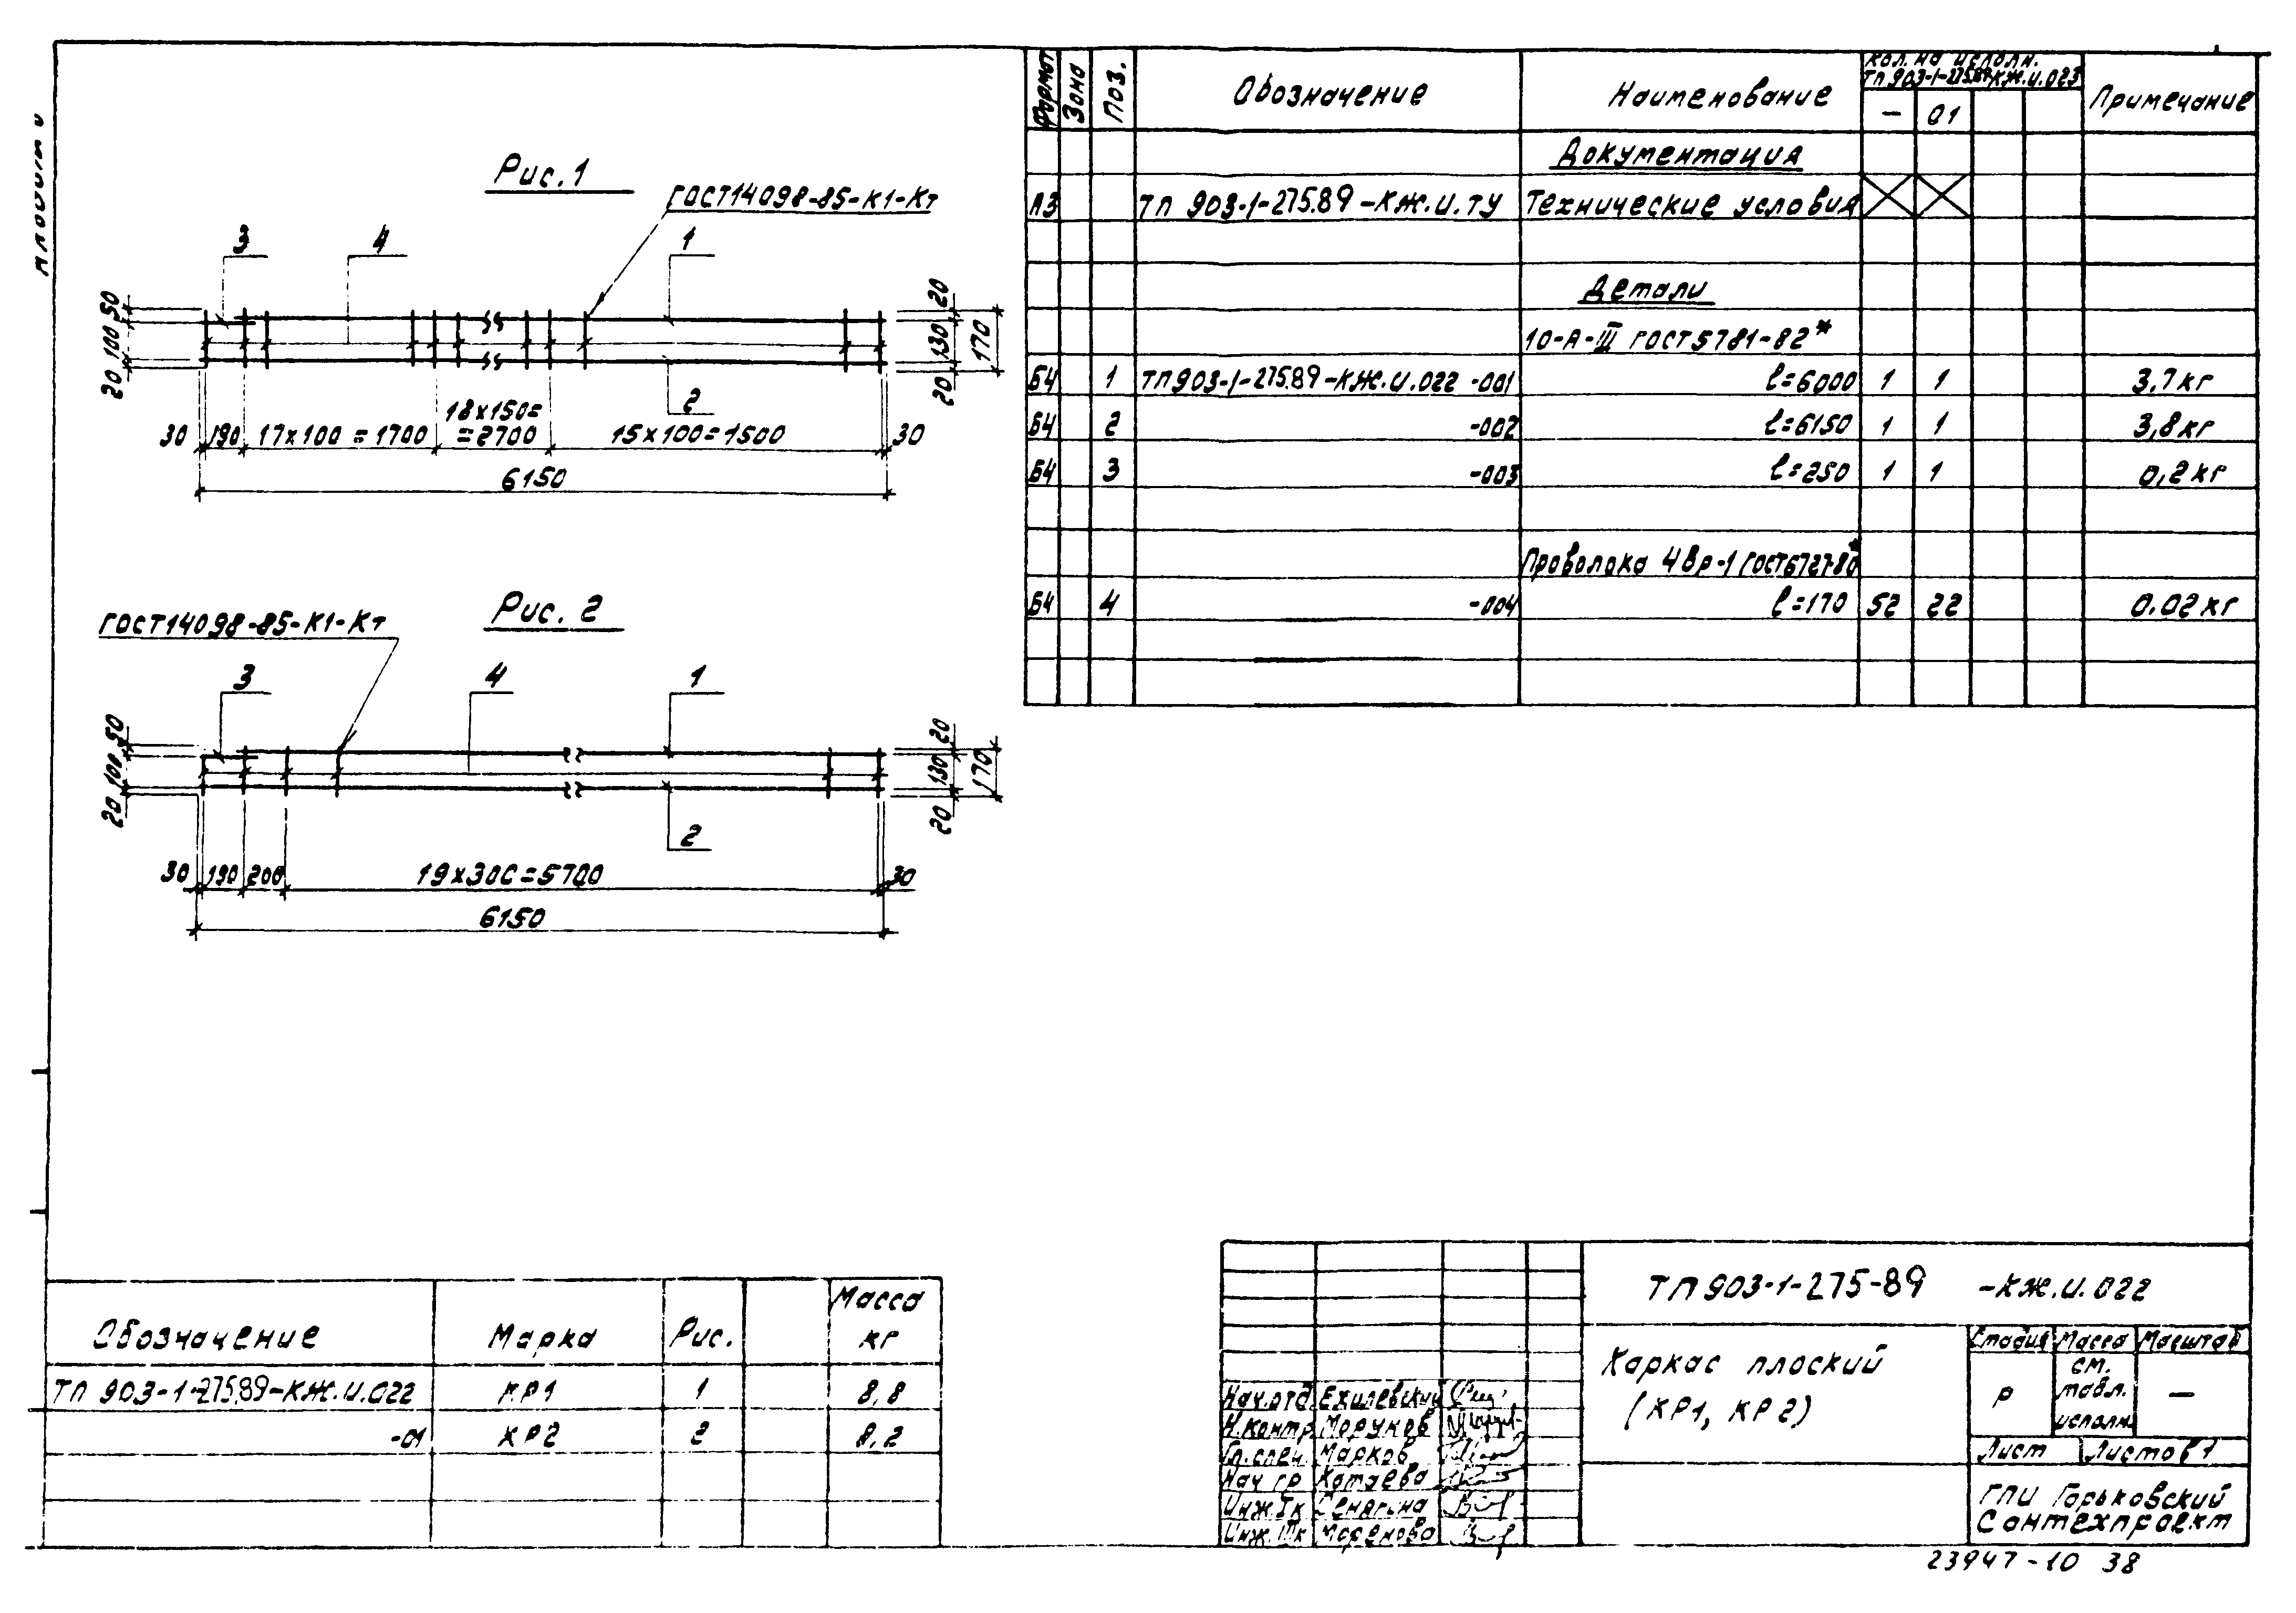 Рис. 1
ГОСТ14098-85-К1-Кт
3
4
1
50
100
20
20
130
20
170
2
30
190
17х100=1700
18х150=
=2700
15х100=1500
30
6150
Рис. 2
ГОСТ14098-85-К1-Кт
3
4
1
50
100
20
20
130
20
170
2
30
190
200
19х300=5700
30
6150
Формат Зона Поз. Обозначение Наименование Кол. на исполн. Примечание
ТП903-1-275.89-КЖ.И.023
— 01
Документация
А3 ТП 903-1-275.89-КЖ.И.ТУ Технические условия
Детали
10-А-III ГОСТ5781-82*
Б4 1 ТП903-1-275.89-КЖ.И.022 -001 ℓ=6000 1 1 3,7кг
Б4 2 -002 ℓ=6150 1 1 3,8кг
Б4 3 -003 ℓ=250 1 1 0,2кг
Проволока 4Вр-1 ГОСТ6727-80*
Б4 4 -004 ℓ=170 52 22 0.02кг
Обозначение Марка Рис. Масса кг
ТП 903-1-275.89-КЖ.И.022 КР1 1 8,8
-01 КР2 2 8,2
ТП903-1-275-89 -КЖ.И.022
Каркас плоский
(КР1, КР2)
Стадия Масса Масштаб
Р см. табл. исполн. —
Лист Листов 1
ГПИ Горьковский
Сантехпроект
Нач.отд. Ехилевский
Н.контр. Моруков
Гл.спец. Марков
Нач.гр Катаева
Инж.Iк Сенягина
Инж.IIIк
23947-10 38